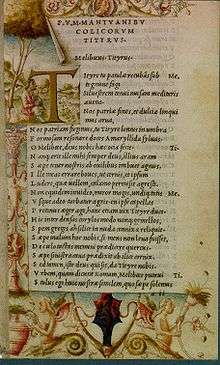 P. V. M. MANTVANI BV
COLICORVM
TITYRVS.
Meliboeus. Tityrus.
Tityre tu patulæ recubās sub Me.
tegmine fagi
Siluestrem tenui musam meditaris
auena.
Nos patriæ fines, et dulcia linqui
mus arua,
Nos patriam fugimus, tu Tityre lentus in umbra
Formosam resonare doces Amaryllida syluas.
O Meliboee, deus nobis hæc ocia fecit. Ti.
Nanq; erit ille mihi semper deus, illius aram
Sæpe tener nostris ab ouilibus imbuet agnus.
Ille meas errare boues, ut cernis, et ipsum
Ludere, quæ uellem, calamo permisit agresti.
Non equidem inuideo, miror magis, undiq; totis Me.
Vsque adeo turbatur agris. en ipse capellas
Protinus æger ago, hanc etiam uix Tityre duco.
Hic inter densas corylos modo nanq; gemellos,
Spem gregis ah silice in nuda connixa reliquit.
Sæpe malum hoc nobis, si mens non læua fuisset,
De cœlo tactas memini prædicere quercus.
Sæpe sinistra caua prædixit ab ilice cornix.
Sed tamen, iste deus qui sit, da Tityre nobis.
Vrbem, quam dicunt Romam, Meliboee putaui Ti.
Stultus ego huic nostræ similem, quo sæpe solemus